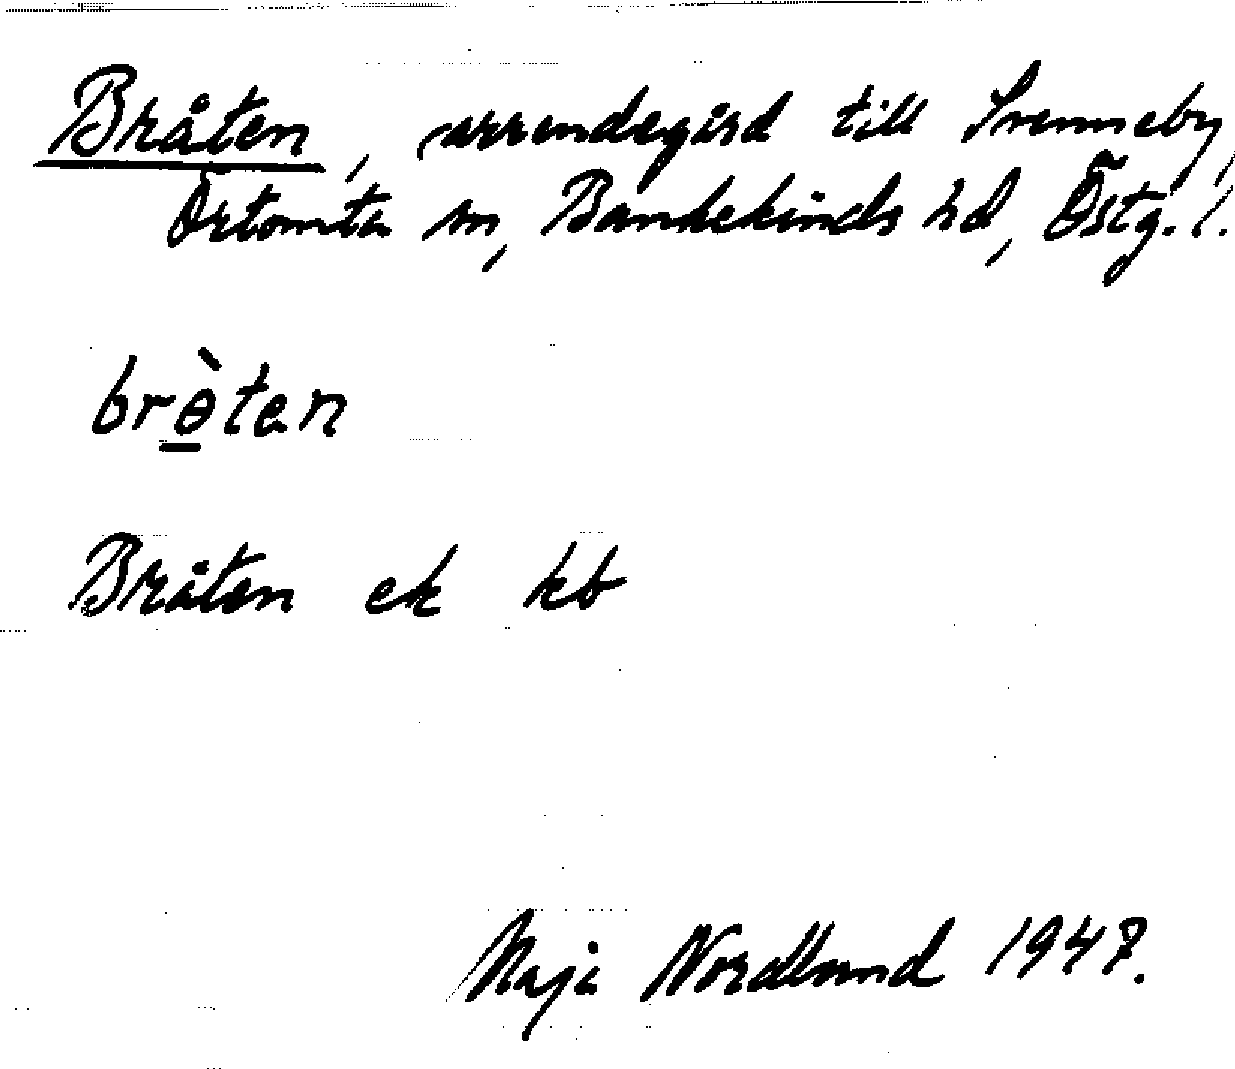 Bråten, arrendegård till Svenneby,
Örtomta sn, Bankekinds hd, Östg. l.
brɵ̀tən
Bråten ek kb
Maja Nordlund 1947.